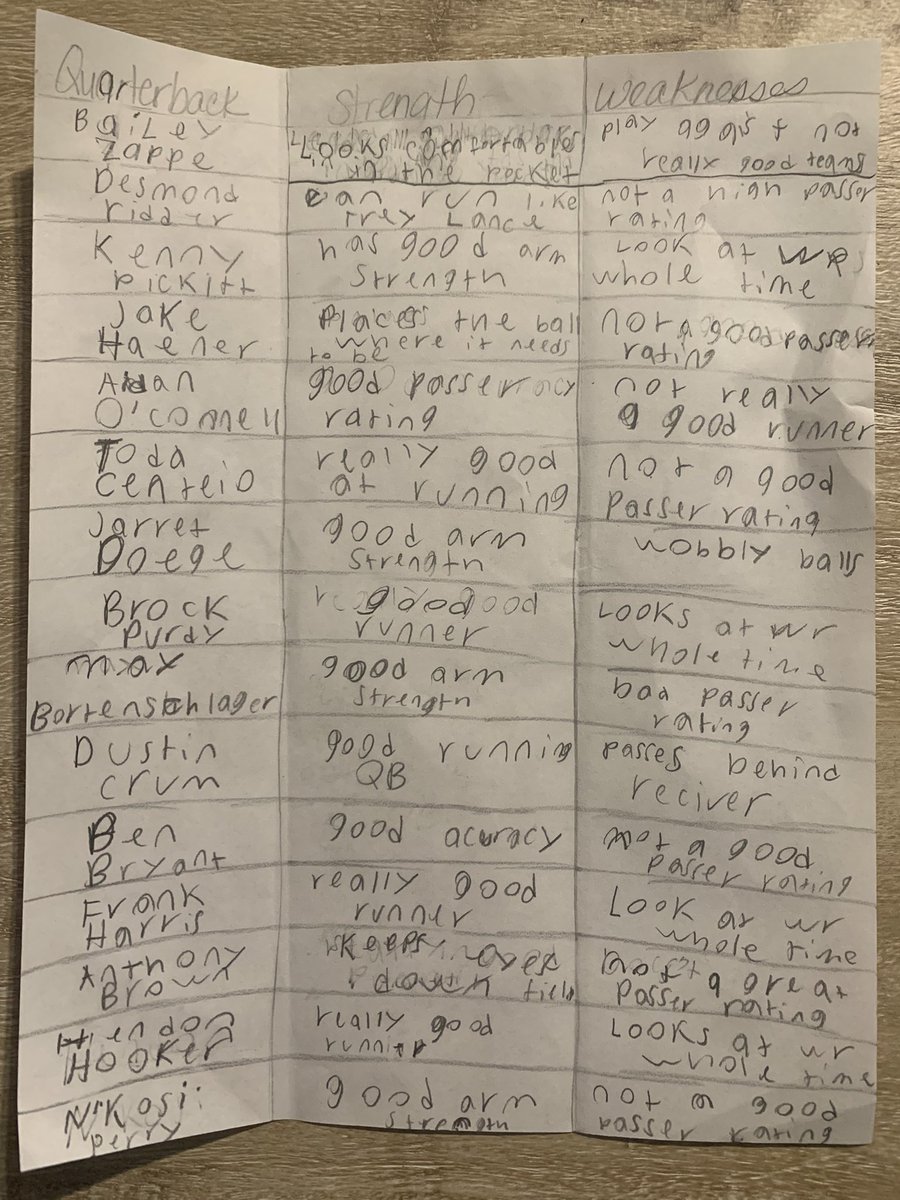 Quarterback Strength Weaknesses
Bailey Looks comfortable play against not
Zappe in the pocket really good teams
Desmond can run like not a high passer
ridder Trey Lance rating
Kenny has good arm Look at WRs
pickitt Strength whole time
Jake Places the ball not a good passer
Haener where it needs rating
to be
Aidan good passer not really
O'connell rating a good runner
Todd really good not a good
centeio at running Passer rating
Jarret good arm wobbly balls
Doege Strength
Brock good Looks at wr
Purdy runner whole time
max good arm bad passer
Bortenschlager Strength rating
Dustin good running passes behind
crum QB reciver
Ben good acuracy not a good
Bryant passer rating
Frank really good Look at wr
Harris runner whole time
Anthony keeps eyes not a great
Brown down field Passer rating
Hendon really good Looks at wr
Hooker runner whole time
N'Kosi good arm not a good
perry strength passer rating